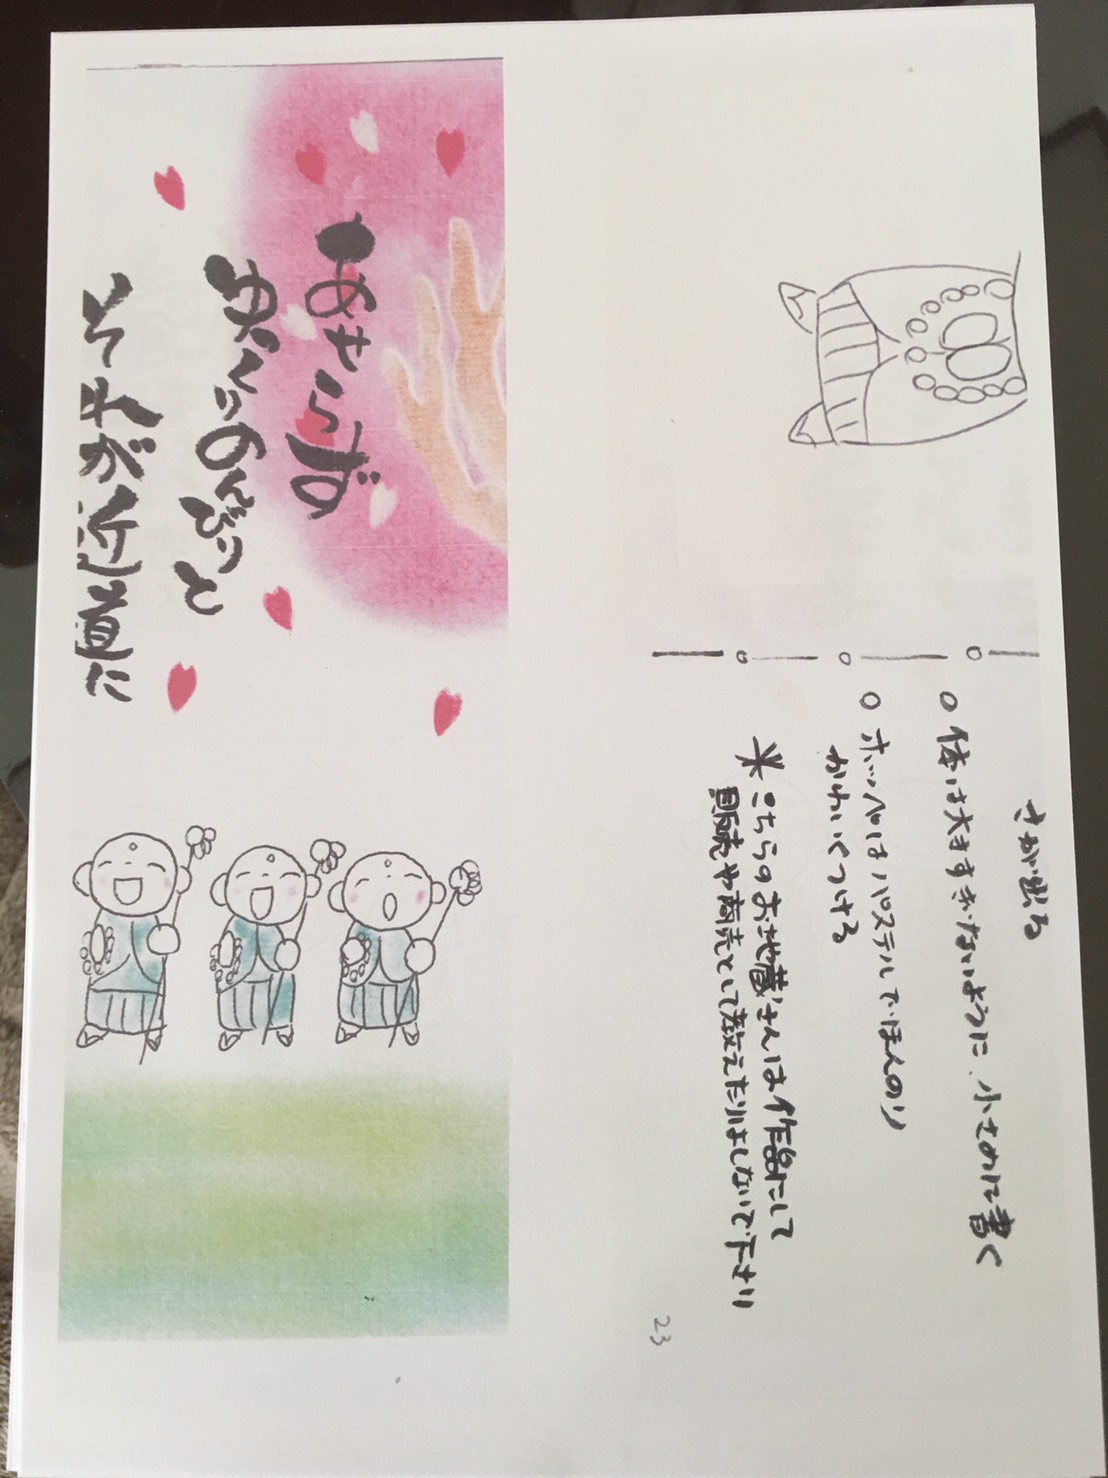 あせらず
ゆっくりのんびりと
それが近道に
さが出る
○ 体は大きすぎないように、小さめに書く
○ ホッペはパステルでほんのり
かわいくつける
※こちらのお地蔵さんは作品にして
販売や商売として教えたりはしないで下さい
23